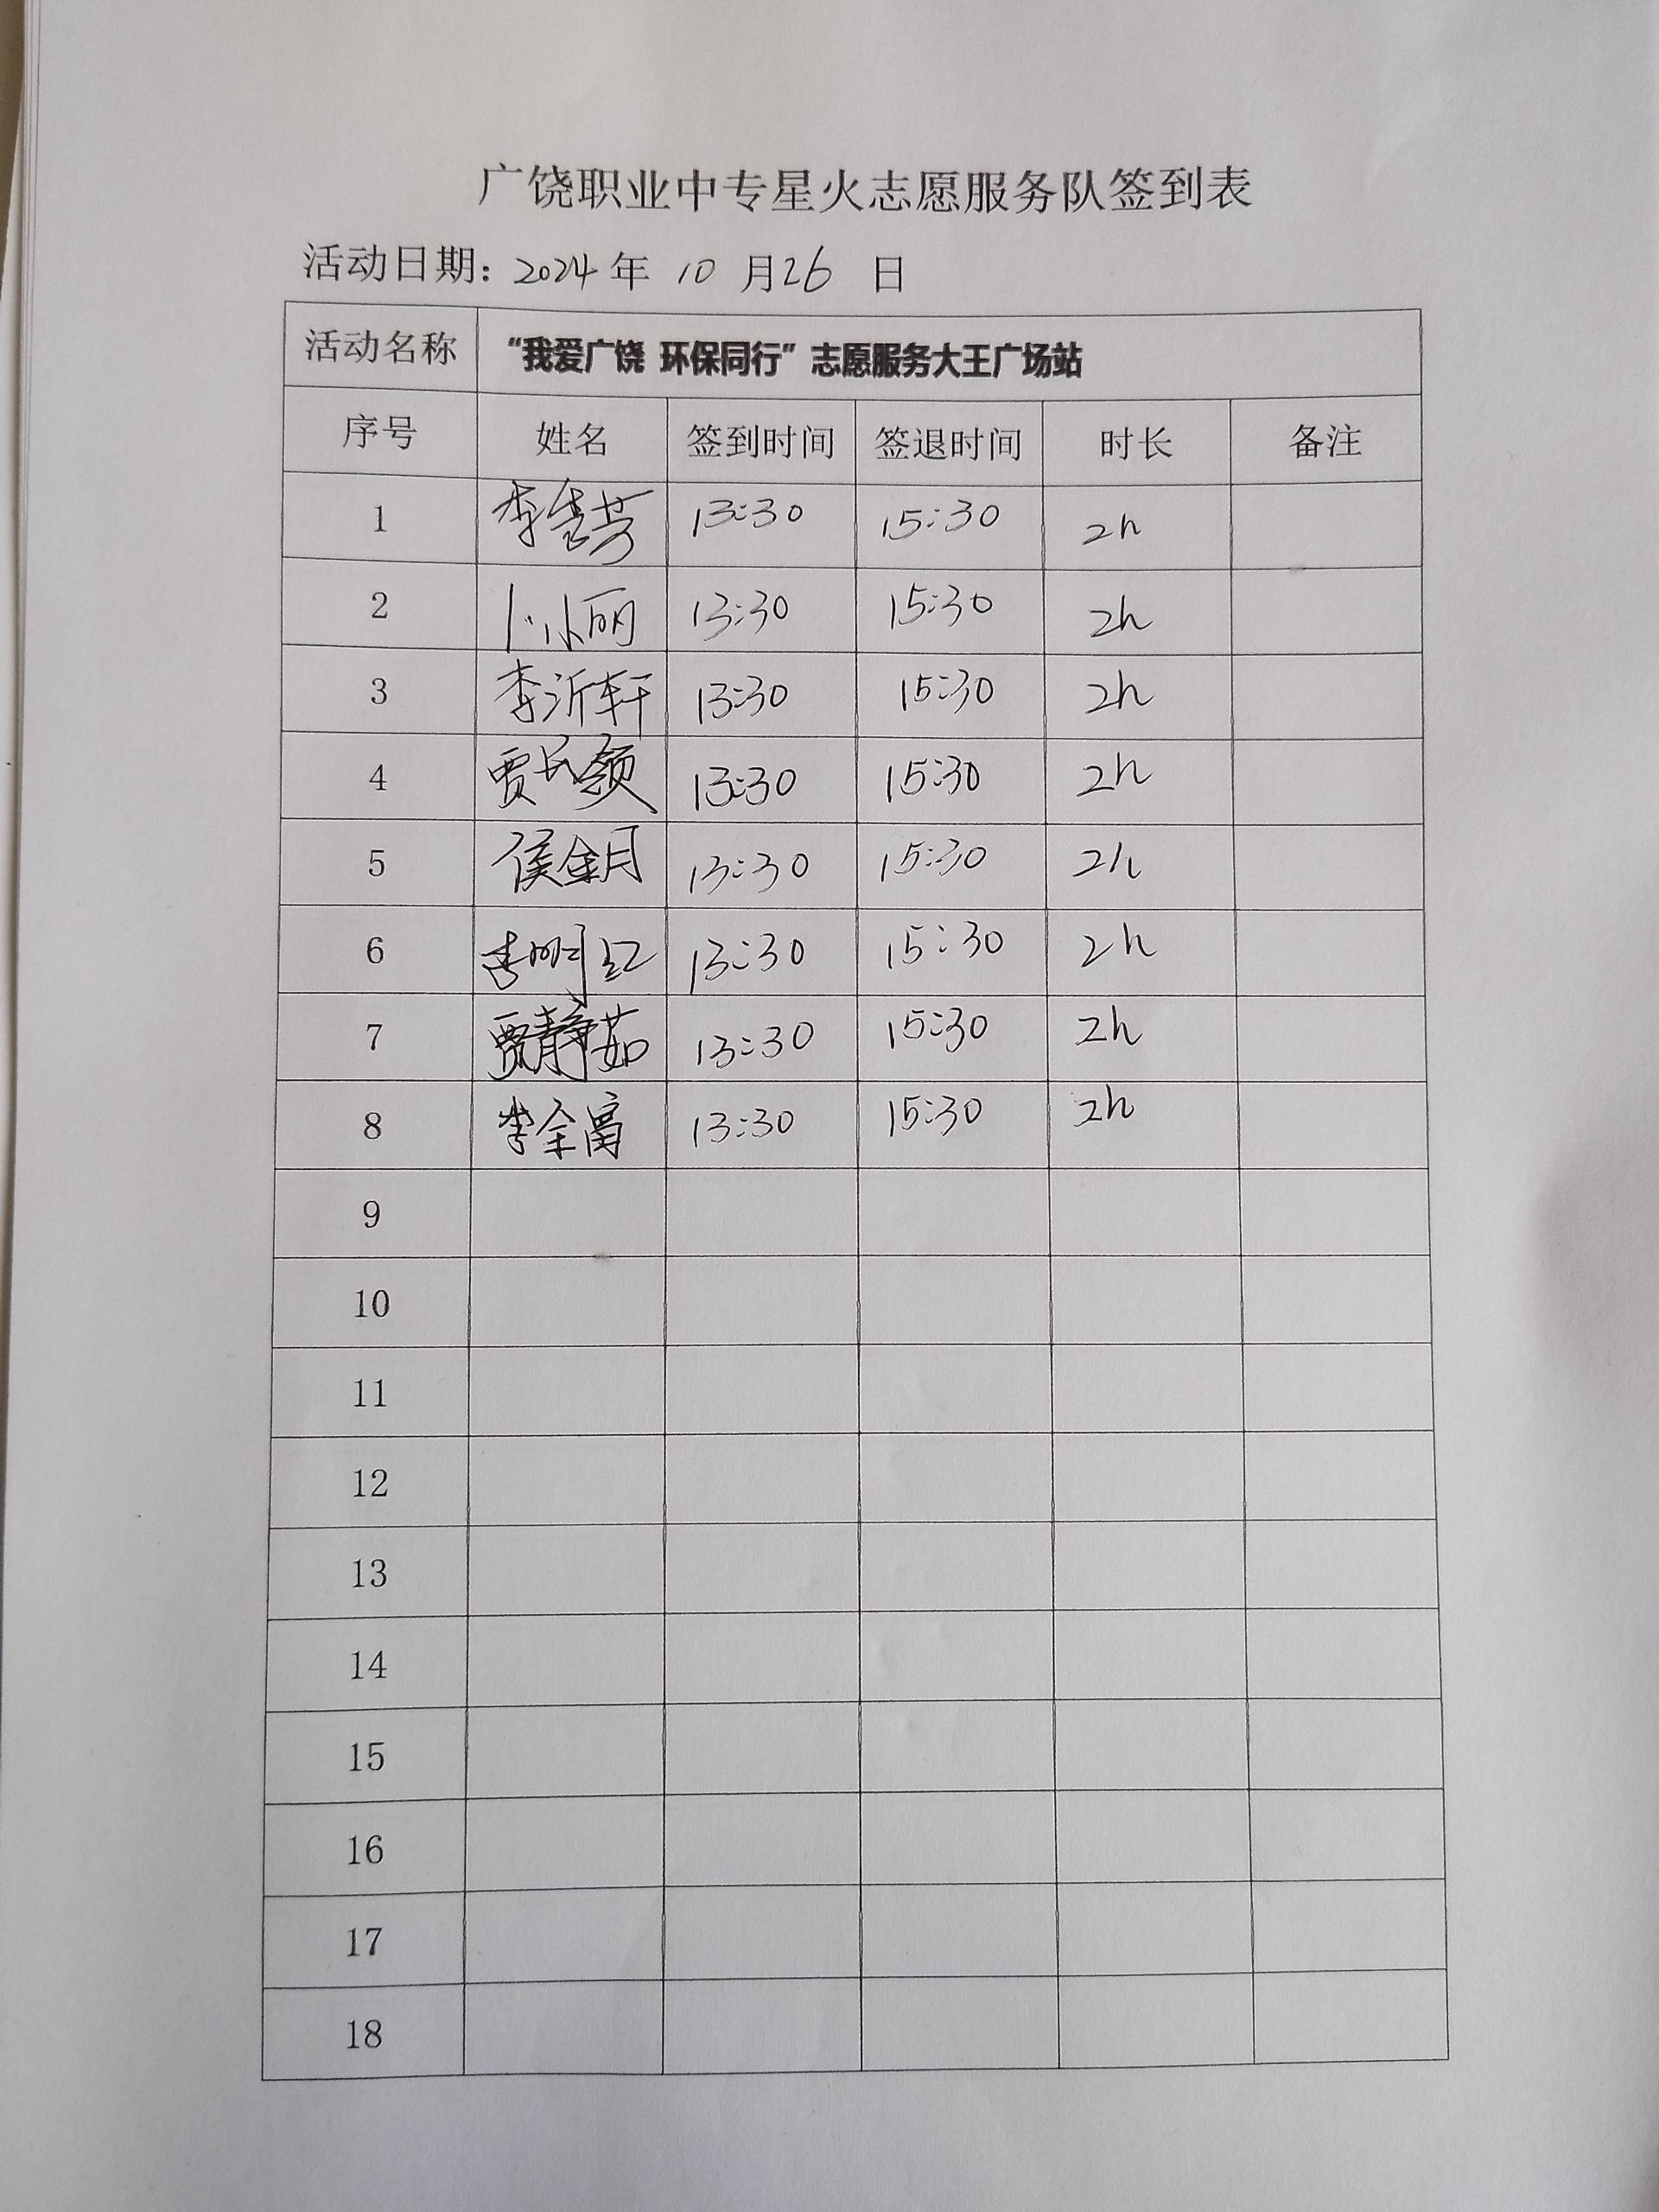 广饶职业中专星火志愿服务队签到表
活动日期：2024年 10 月26 日
活动名称 “我爱广饶 环保同行”志愿服务大王广场站
序号 姓名 签到时间 签退时间 时长 备注
1 13:30 15:30 2h
2 13:30 15:30 2h
3 李沂轩 13:30 15:30 2h
4 13:30 15:30 2h
5 侯金月 13:30 15:30 2h
6 李明 13:30 15:30 2h
7 贾静茹 13:30 15:30 2h
8 李全富 13:30 15:30 2h
9
10
11
12
13
14
15
16
17
18